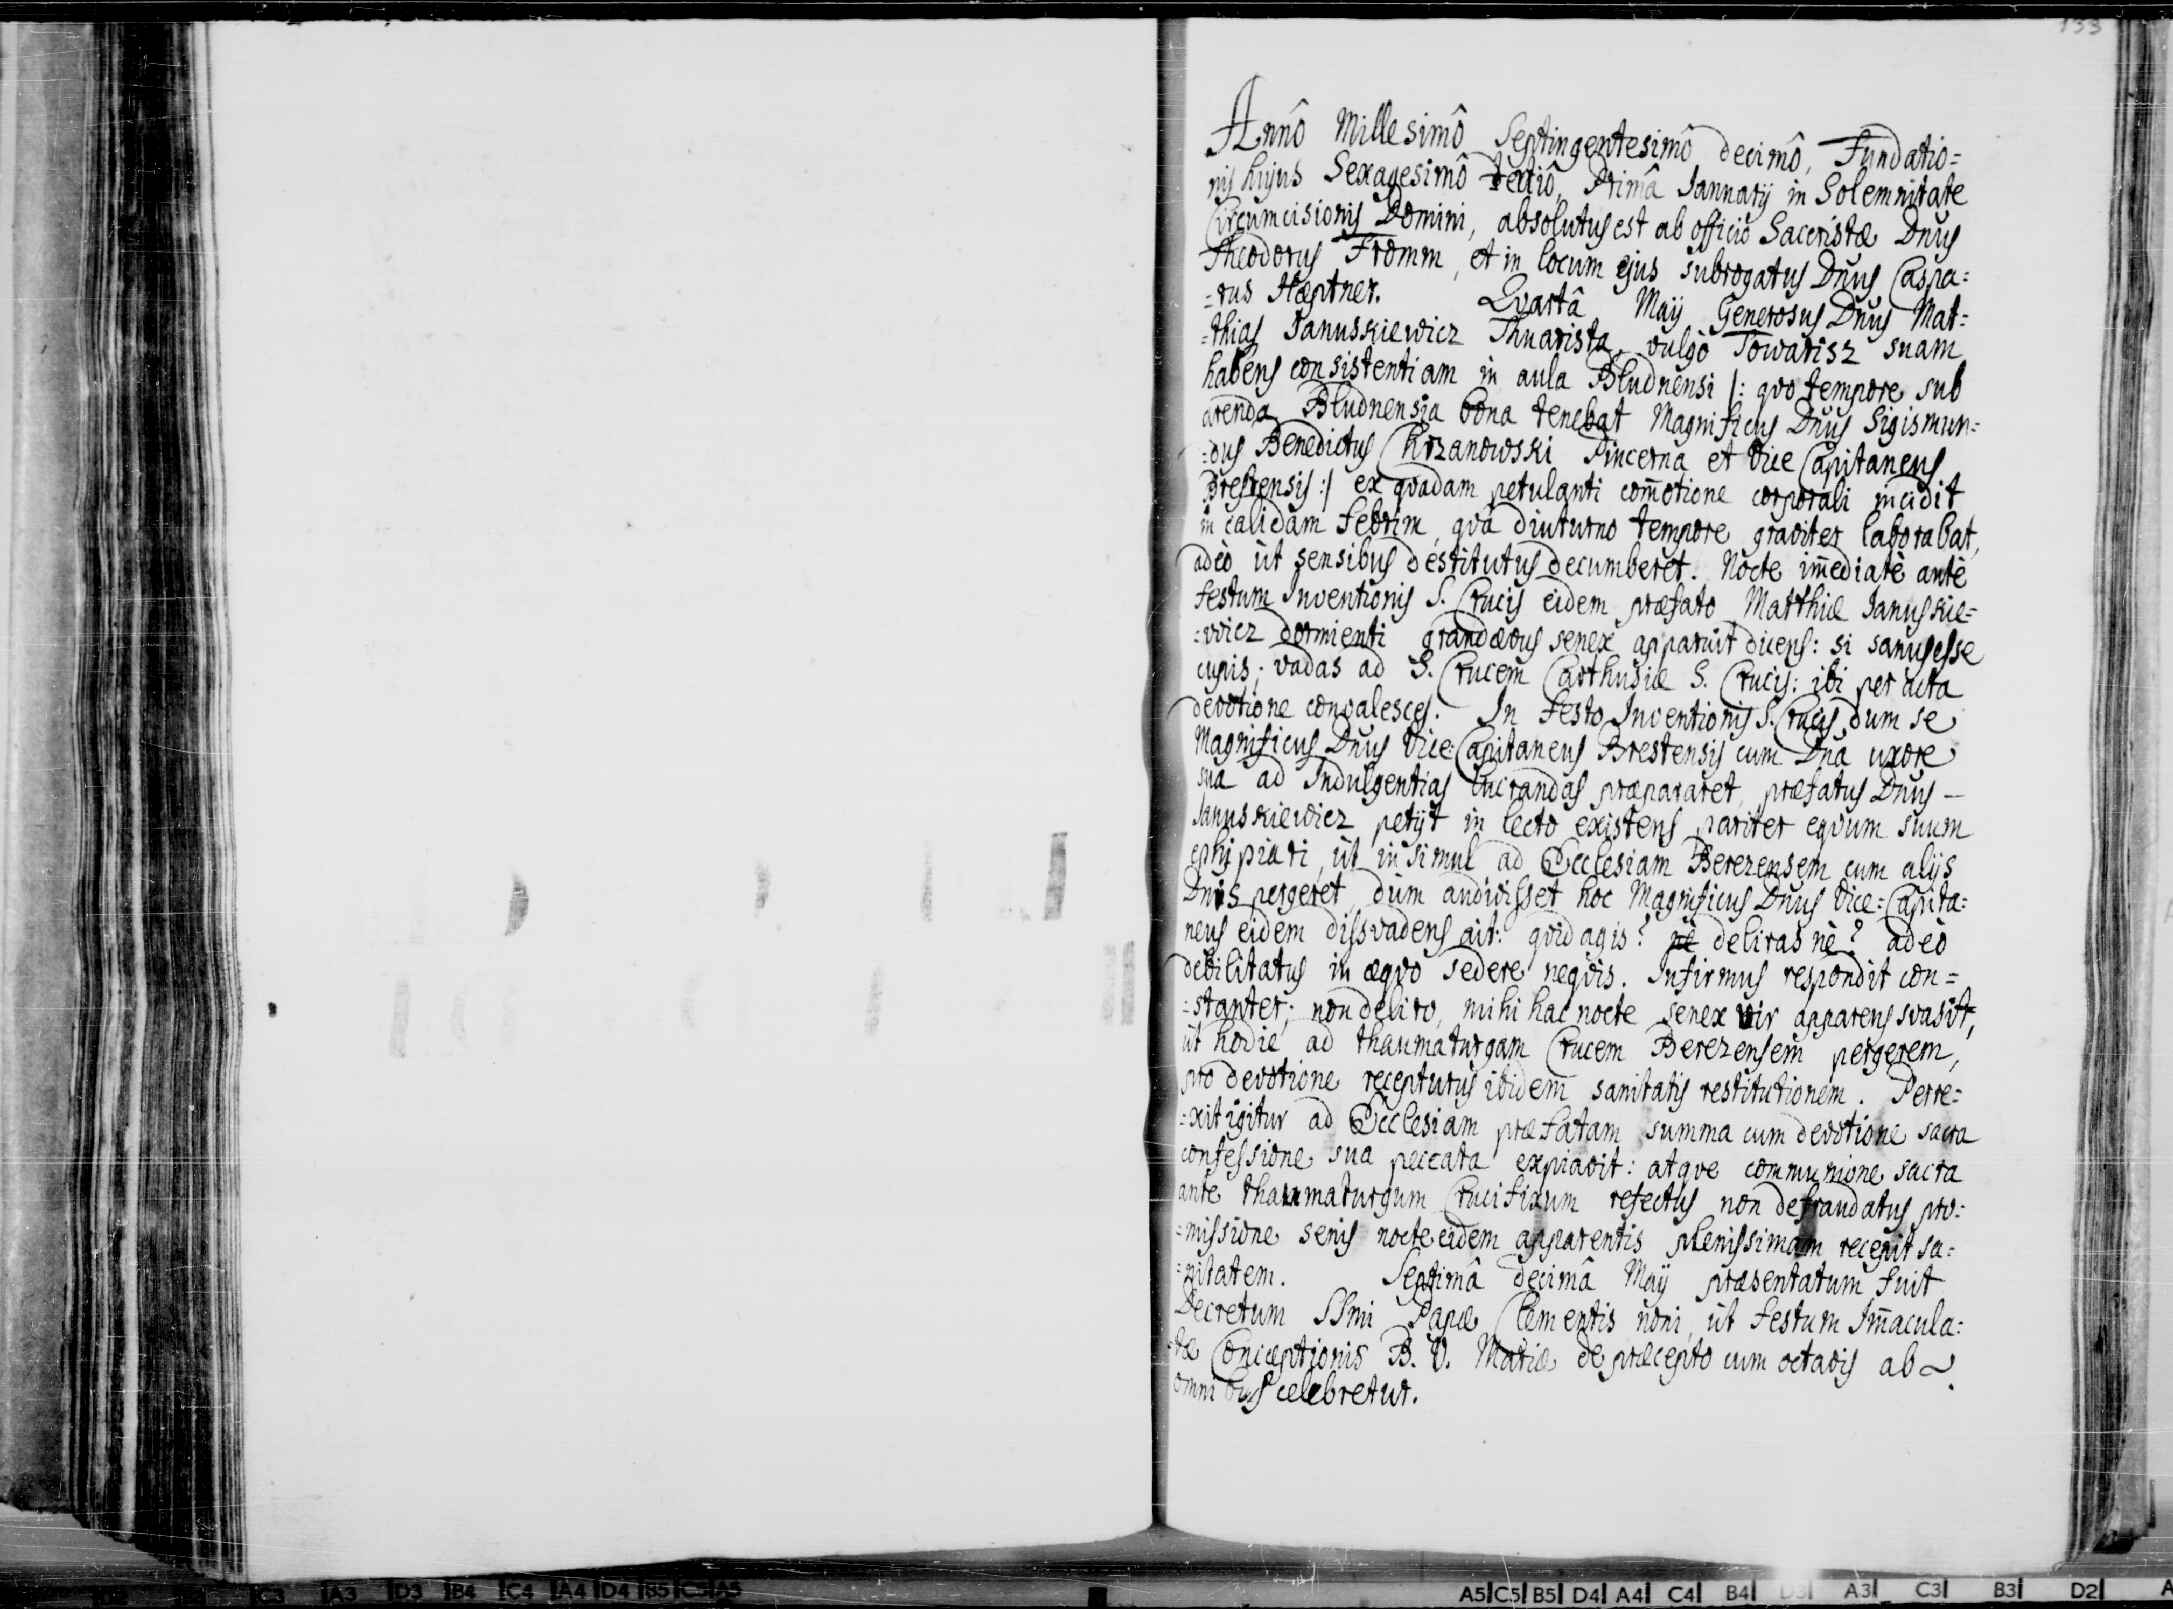 133
Annô Millesimô Septingentesimô decimô, Fundatio=
nis hujus Sexagesimô tertiô, Primâ Ianuarij in Solemnitate
Circumcisionis Domini, absolutus est ab officio Sacristæ Dnus
Theodorus Fromm, et in locum ejus subrogatus Dnus Caspa:
=rus Hæptner. Qvartâ Maij Generosus Dnus Mat:
=thias Januskiewicz Thuarista, vulgo Towarisz suam
habens consistentiam in aula Bludnensi /: qvo tempore sub
arenda Bludnensia bona tenebat Magnificus Dnus Sigismun=
=dus Benedictus Chrzanowski Pincerna et Vice Capitaneus
Brestensis :/ ex qvadam petulanti com̄otione corporali incidit
in calidam febrim, qvâ diuturno tempore graviter laborabat,
adeò ut sensibus destitutus decumberet. Nocte im̄ediatè antè
festum Inventionis S. Crucis eidem præfato Matthiæ Januskie=
=wicz dormienti grandævus senex apparuit dicens: si sanus esse
cupis; vadas ad S. Crucem Carthusiæ S. Crucis: ibi peracta
devotione convalesces. In festo Inventionis S. Crucis dum se
Magnificus Dnus Vice-Capitaneus Brestensis cum Dnâ uxore
sua ad Indulgentias lucrandas præpararet, præfatus Dnus —
Januskiewicz petijt in lecto existens pariter eqvum suum
ephipiari, ut insimul ad Ecclesiam Berezensem cum alijs
Dnis pergeret, dum audivisset hoc Magnificus Dnus Vice=Capita=
neus eidem dissvadens ait: qvid agis? ne delirasnè? adeò
debilitatus in æqvo sedere neqvis. Infirmus respondit con=
=stanter; non deliro, mihi hac nocte senex vir apparens svasit,
ut hodie ad thaumaturgam Crucem Berezensem pergerem,
pro devotione recepturus ibidem sanitatis restitutionem. Perre=
=xit igitur ad Ecclesiam præfatam summa cum devotione sacra
confessione sua peccata expiavit: atqve communione sacra
ante thaumaturgum Crucifixum refectus non defraudatus pro:
=missione senis nocte eidem apparentis plenissimam recepit sa=
=nitatem. Septimâ decimâ Maij præsentatum fuit
Decretum SSmi Papæ Clementis noni, ut festum Im̄acula:
=tæ Conceptionis B. V. Mariæ de præcepto cum octavis ab
omnibus celebretur.
C3 A3 D3 B4 C4 A4 D4 B5 C5 A5
A5 C5 B5 D4 A4 C4 B4 D3 A3 C3 B3 D2